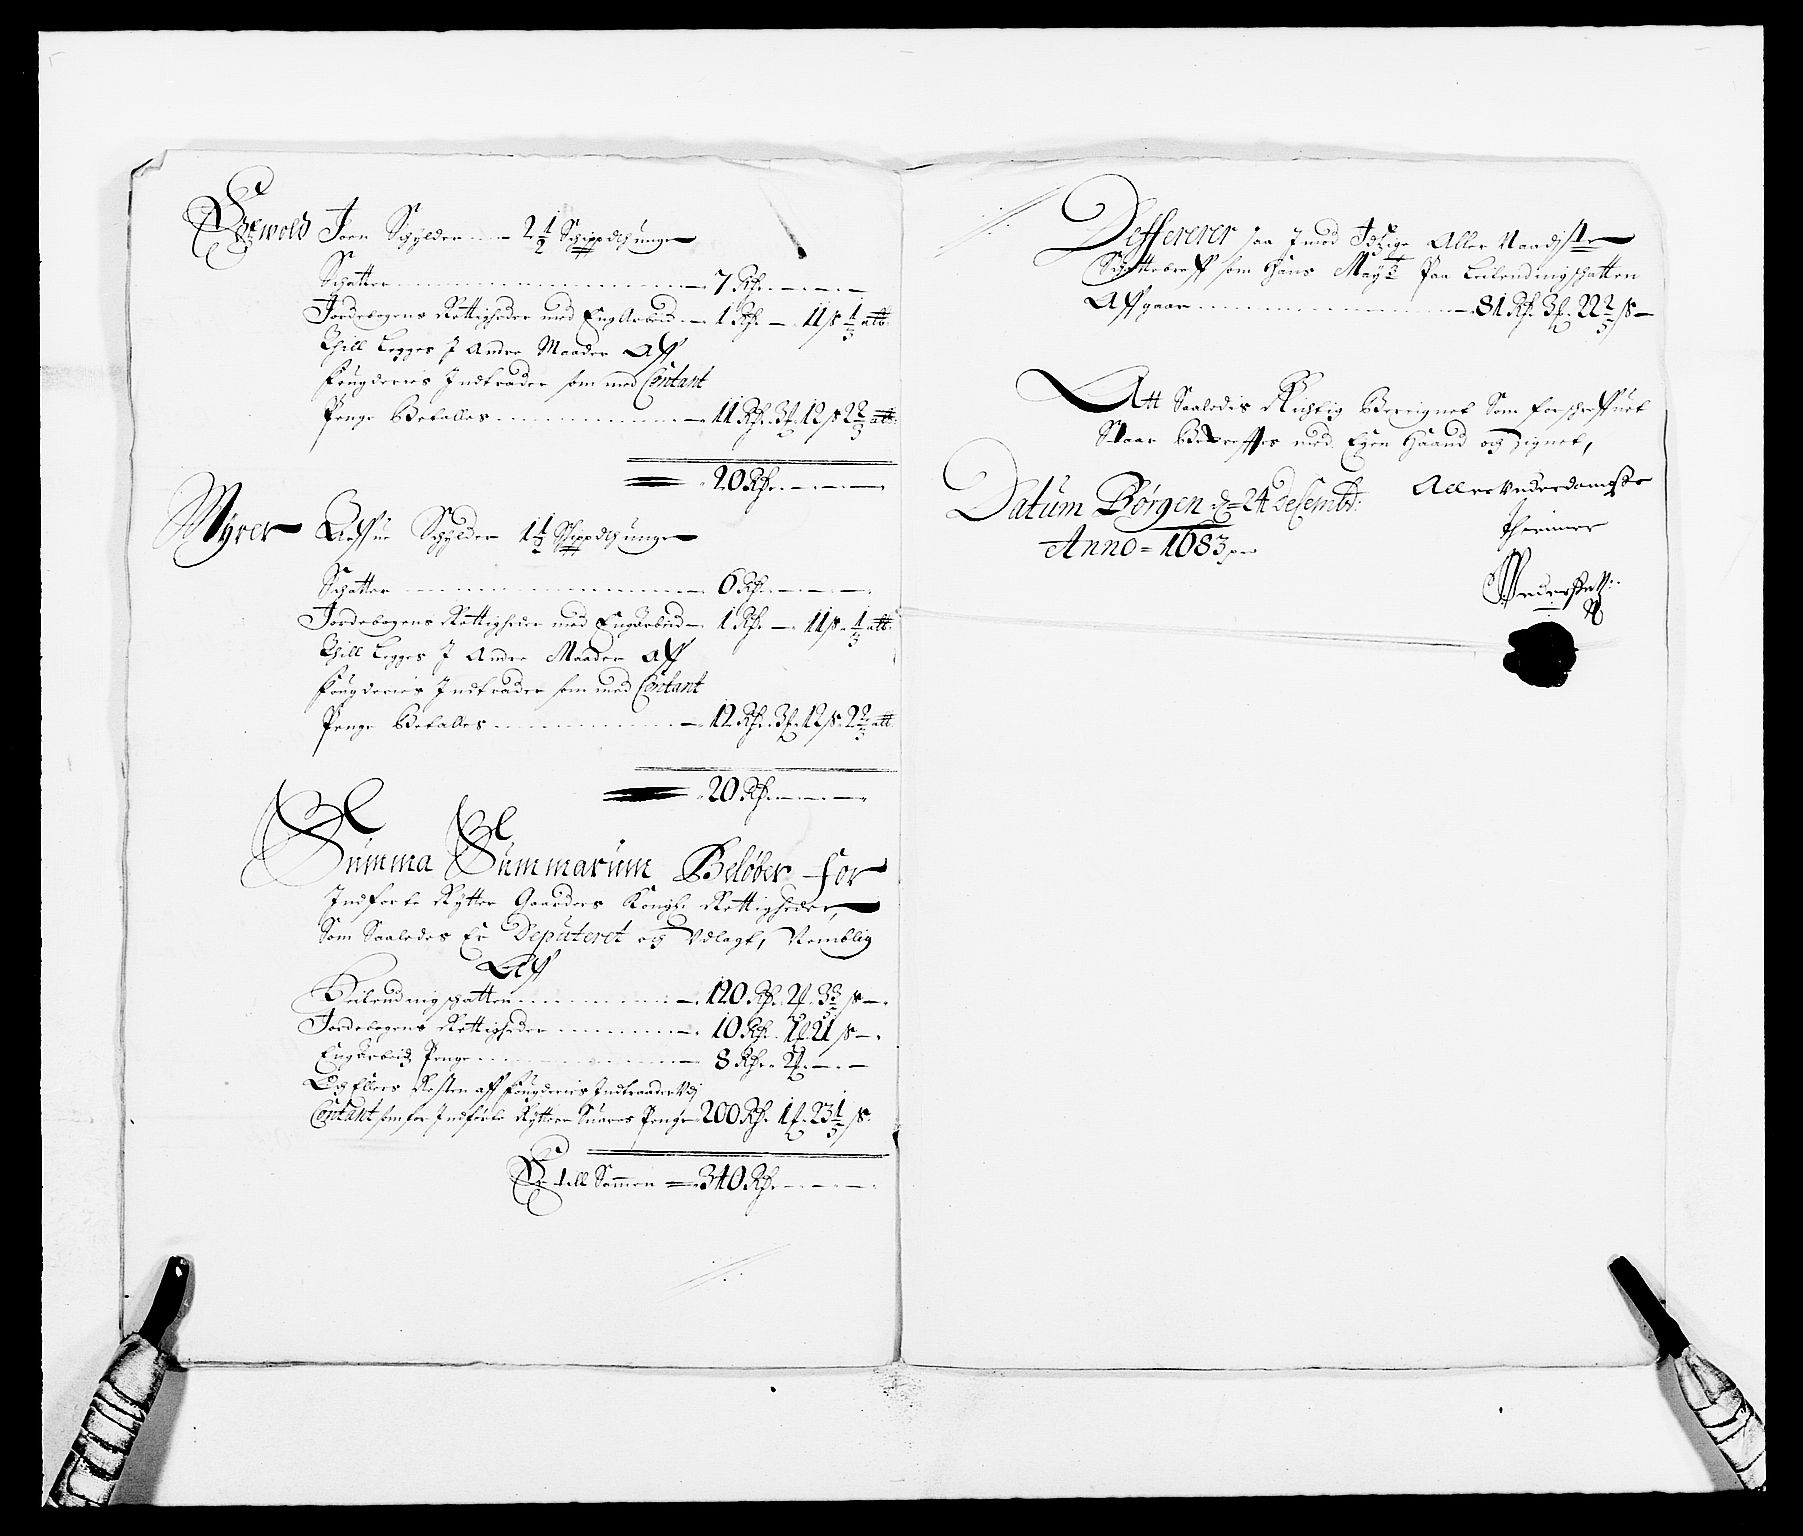 Joen Schylder — 2 1/2 Schippd tunge
Schatter — 7 Rd. — — —
Jordebogens Rettigheder med EngArbeid — 1 Rd. — 11 s 1/3 alb:
Thill Legges J Andre Maader Aff
Fougderies Indtrader som med Contant
Penge Betalles — 11 Rd. 3 12 s 2 2/3 alb:
20 Rd. — — —
Myrer Schylder 1 1/2 Schippd tunge
Schatter — 6 Rd. — — —
Jordebogens Rettigheder med Engarbeid — 1 Rd. — 11 s. 1/3 alb:
Thill Legges J Andre Maader aff
Fougderies Indtrader som med Contant
Penge Betalles — 12 Rd. 3 12 s. 2 2/3 alb
20 Rd. — — —
Summa Summarum Beløber for
Indførte Rytter Gaarders Kongl: Rettigheder,
Som Saaledes Er Deputeret og Udlagt, Nemblig
Aff
Leilendingschatten — 120 Rd. 2 3 3/5 s —
Jordebogens Rettigheder — 10 Rd. 1 21 s —
Engarbeids Penge — 8 Rd. 2 — —
Og Ellers Resten aff Fougderies Indtraader Udj
Contant som for Indførte Rytter Penge 200 Rd. 1 23 1/5 s.
Er till Sammen — 340 Rd. — — —
Deffererer saa J mod Aller Naadigste
Schattebreff som Hans Mayts Paa Leilendingschatten
Affgaar — 81 Rd. 3 22 2/5 s —
Att Saaledis Richtig Bereignet Som forschreffuet
Staar Bekrefftes med Egen Haand og Signet,
Datum Børgen d = 24 Desembr:
Anno = 1683
Aller Underdanigste
thienner